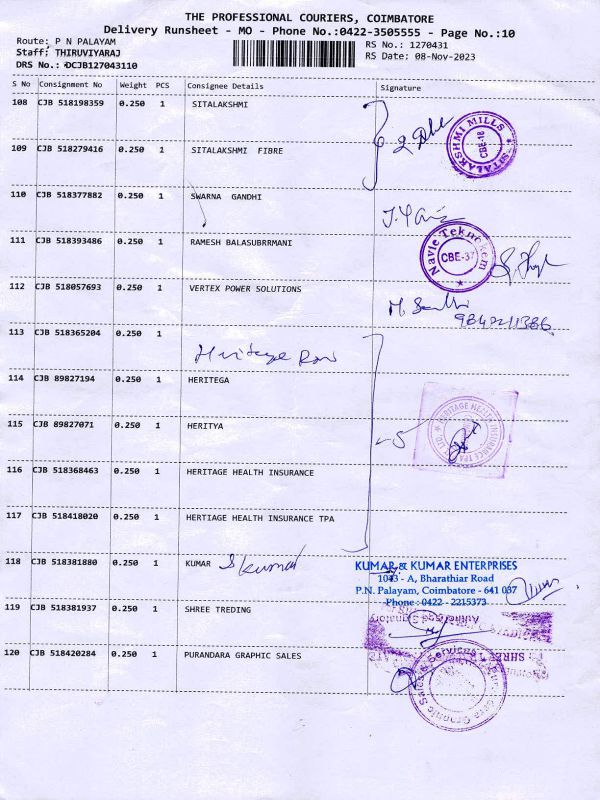 THE PROFESSIONAL COURIERS, COIMBATORE
Delivery Runsheet - MO - Phone No.:0422-3505555 - Page No.:10
Route: P N PALAYAM
Staff: THIRUVIYARAJ
DRS No.: DCJB127043110
RS No.: 1270431
RS Date: 08-Nov-2023
S No Consignment No Weight PCS Consignee Details Signature
108 CJB 518198359 0.250 1 SITALAKSHMI
109 CJB 518279416 0.250 1 SITALAKSHMI FIBRE
SITALAKSHMI MILLS
CBE-18
110 CJB 518377882 0.250 1 SWARNA GANDHI
111 CJB 518393486 0.250 1 RAMESH BALASUBRRMANI
Navie Teknokem
CBE-37
112 CJB 518057693 0.250 1 VERTEX POWER SOLUTIONS
113 CJB 518365204 0.250 1
Heritage
114 CJB 89827194 0.250 1 HERITEGA
115 CJB 89827071 0.250 1 HERITYA
-5
HERITAGE HEALTH INSURANCE TPA PVT. LTD.
116 CJB 518368463 0.250 1 HERITAGE HEALTH INSURANCE
117 CJB 518418020 0.250 1 HERTIAGE HEALTH INSURANCE TPA
118 CJB 518381880 0.250 1 KUMAR S kumar
KUMAR & KUMAR ENTERPRISES
1043 - A, Bharathiar Road
P.N. Palayam, Coimbatore - 641 037
Phone : 0422 - 2215373
119 CJB 518381937 0.250 1 SHREE TREDING
Authorised Signatory
SHREE
120 CJB 518420284 0.250 1 PURANDARA GRAPHIC SALES